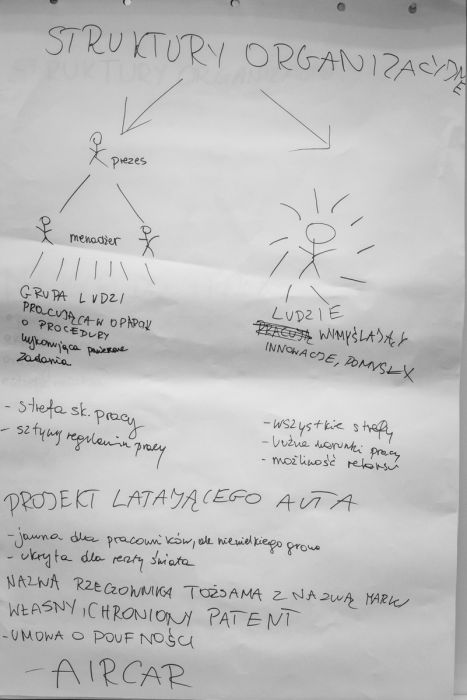 STRUKTURY ORGANIZACYJNE
prezes
menadżer
GRUPA LUDZI
PRACUJĄCA W OPARCIU
O PROCEDURY
wykonująca powierzone
zadania
LUDZIE
PRACUJĄ WYMYŚLAJĄCY
INNOWACJE, POMYSŁY
- strefa sk. pracy
- sztywny regulamin pracy
- wszystkie strefy
- luźne warunki pracy
- możliwość relaksu
PROJEKT LATAJĄCEGO AUTA
- jawna dla pracowników, ale niewielkiego grona
- ukryta dla reszty świata
NAZWA RZECZOWNIKA TOŻSAMA Z NAZWĄ MARKI
WŁASNY i CHRONIONY PATENT
- UMOWA O POUFNOŚCI
- AIRCAR